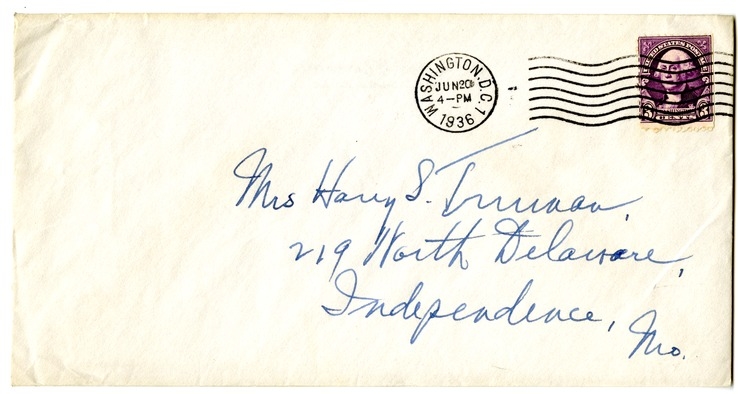 WASHINGTON, D.C. 1
JUN 20
4-PM
1936
UNITED STATES POSTAGE
3 3
Mrs Harry S. Truman,
219 North Delaware,
Independence,
Mo.